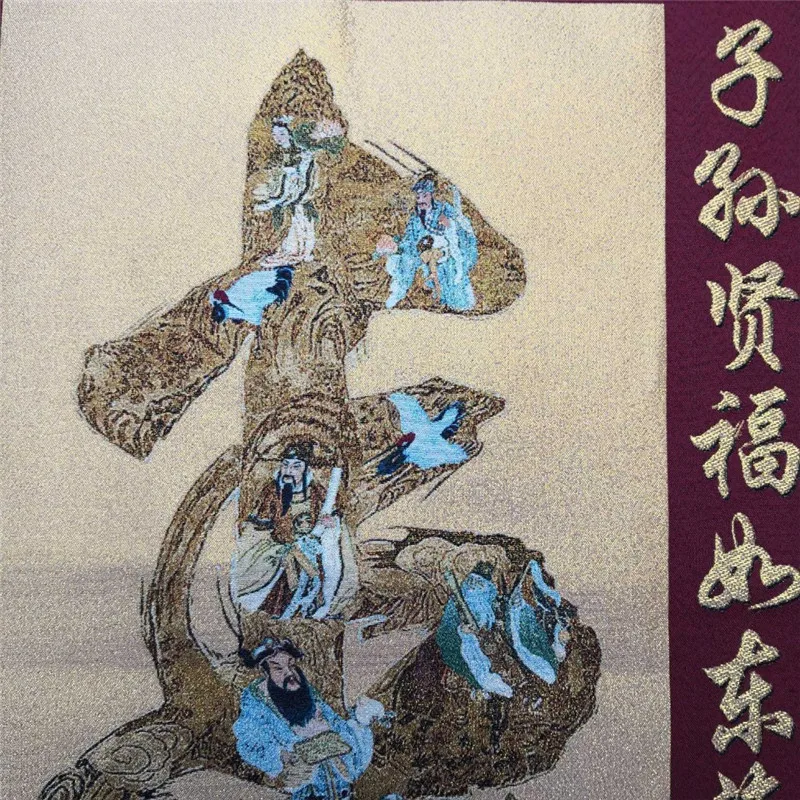 子孙贤福如东